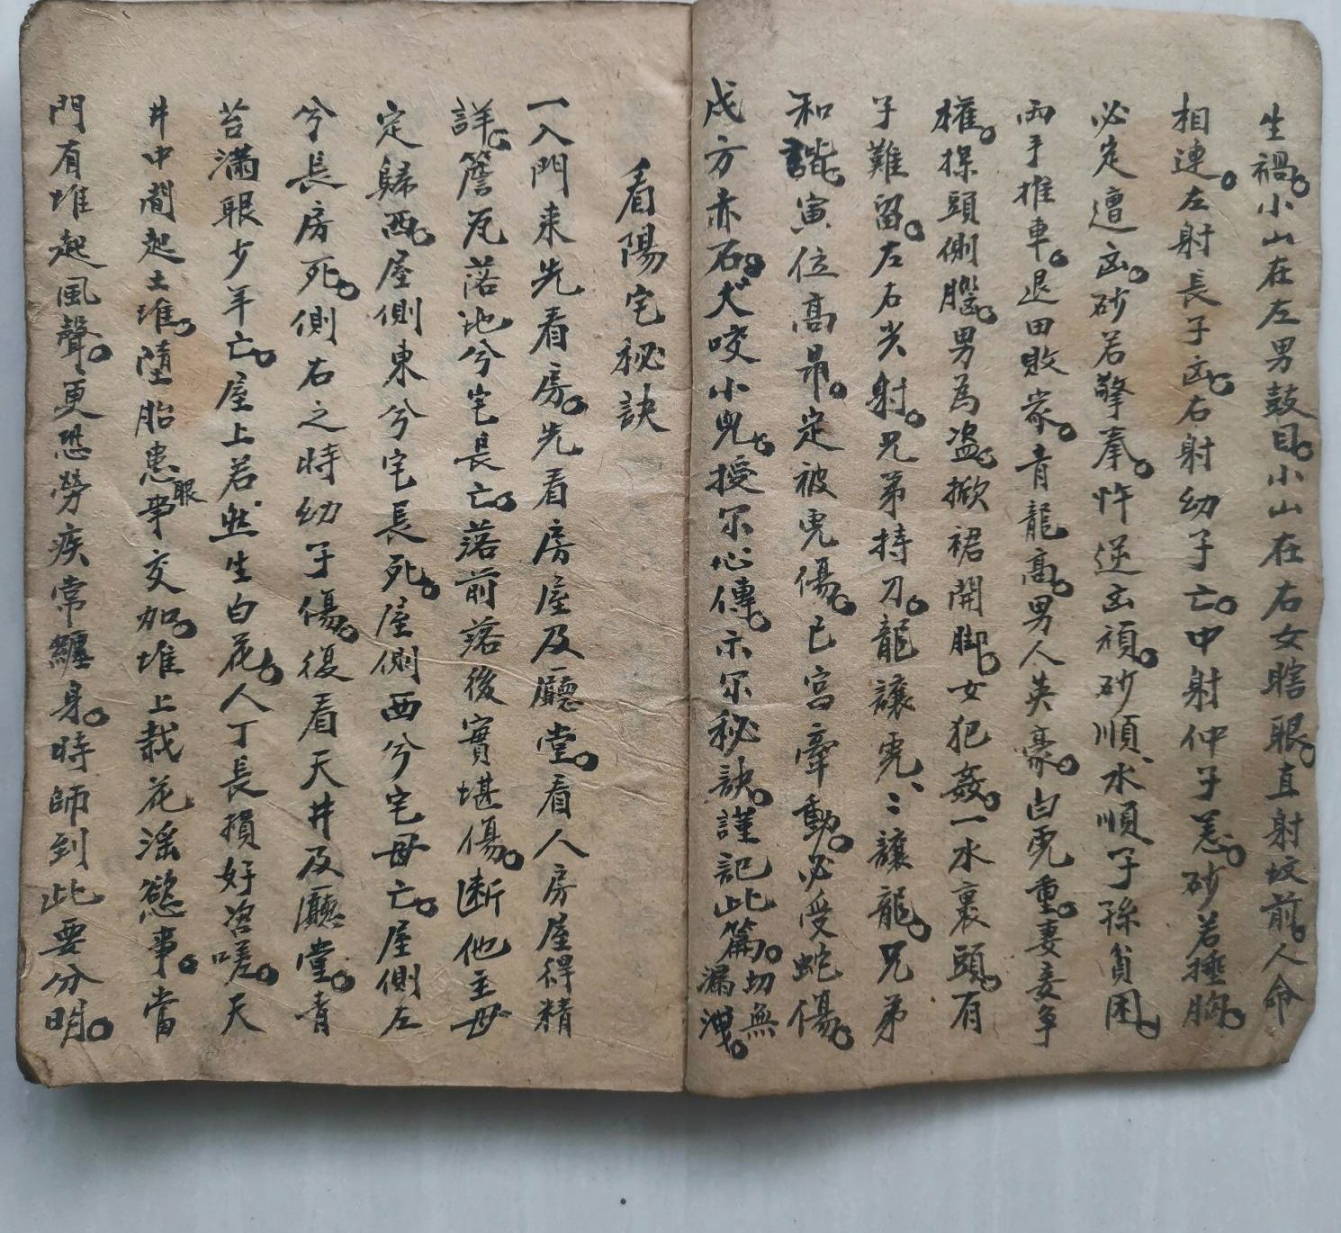 生禍。小山在左男鼓目。小山在右女瞎眼。直射坟前。人命
相連。左射長子凶。右射幼子亡。中射仲子恙。砂若捶胸。
必定遭凶。砂若擎拳。忤逆凶頑。砂順水順子孫貧困。
兩手推車。退田敗家。青龍高。男人英豪。白虎重。妻妾争
權。探頭側腦。男為盗。掀裙開脚。女犯姦。一水裹頭。有
子難留。左右尖射。兄弟持刀。龍讓虎、〻讓龍。兄弟
和諧。寅位高昻。定被虎傷。巳宫牽動。必受蛇傷。
戌方赤石。犬咬小児。授尔心傳。示尔秘訣。謹記此篇。切無漏洩。
看陽宅秘訣
一入門来先看房。先看房屋及廳堂。看人房屋得精
詳。簷瓦落地兮宅長亡。落前落後實堪傷。断他主母
定歸西。屋側東兮宅長死。屋側西兮宅母亡。屋側左
兮長房死。側右之時幼子傷。復看天井及廳堂。青
苔滿眼少年亡。屋上若然生白花。人丁長損好咨嗟。天
井中間起土堆。墮胎患眼事交加。堆上栽花滛慾事。當
門有堆起風聲。更恐勞疾常纏身。時師到此要分明。